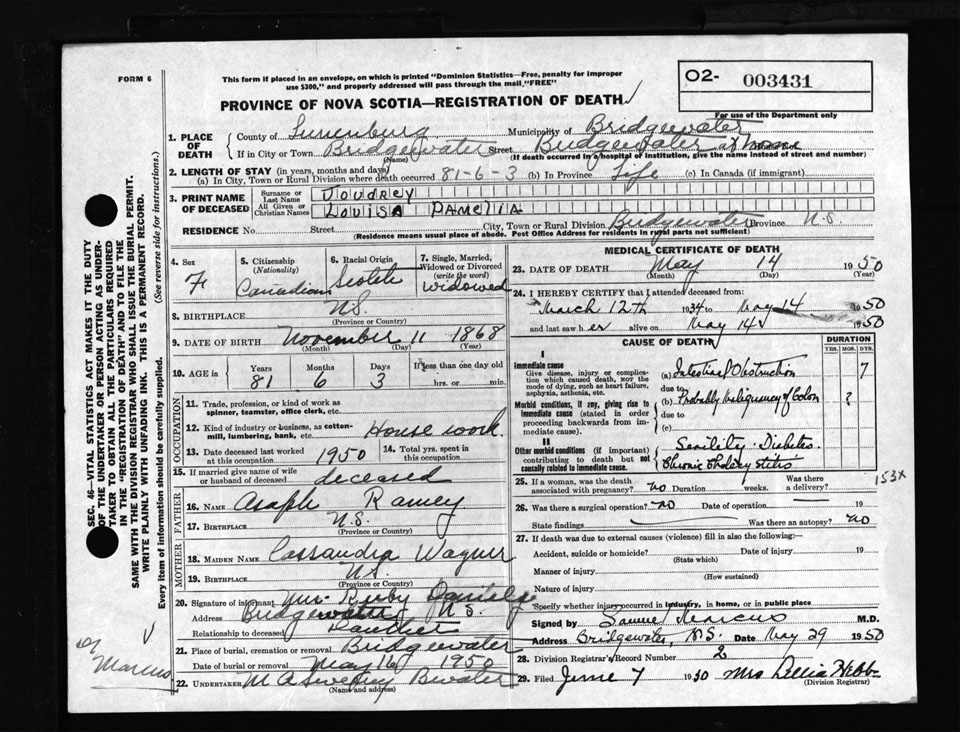 FORM 6
This form if placed in an envelope, on which is printed "Dominion Statistics—Free, penalty for improper
use $300," and properly addressed will pass through the mail "FREE"
O2- 003431
For use of the Department only
PROVINCE OF NOVA SCOTIA—REGISTRATION OF DEATH
1. PLACE OF DEATH
County of Lunenburg Municipality of Bridgewater
If in City or Town Bridgewater Street Bridgewater at home
(Name) (If death occurred in a hospital or institution, give the name instead of street and number)
2. LENGTH OF STAY (in years, months and days)
(a) In City, Town or Rural Division where death occurred 81-6-3 (b) In Province Life (c) In Canada (if immigrant)
3. PRINT NAME OF DECEASED
Surname or Last Name JOUDREY
All Given or Christian Names LOUISA PAMELIA
RESIDENCE No. Street City, Town or Rural Division Bridgewater Province N.S.
(Residence means usual place of abode. Post Office Address for residents in rural parts not sufficient)
4. Sex F
5. Citizenship (Nationality) Canadian
6. Racial Origin Scotch
7. Single, Married, Widowed or Divorced (write the word) widowed
8. BIRTHPLACE N.S.
(Province or Country)
9. DATE OF BIRTH November 11 1868
(Month) (Day) (Year)
10. AGE in Years 81 Months 6 Days 3 If less than one day hrs. or min.
OCCUPATION
11. Trade, profession, or kind of work as spinner, teamster, office clerk, etc.
12. Kind of industry or business, as cotton-mill, lumbering, bank, etc. House work
13. Date deceased last worked at this occupation 1950
14. Total yrs. spent in this occupation
15. If married give name of wife or husband of deceased deceased
FATHER
16. NAME Asaph Ramey
17. BIRTHPLACE N.S.
(Province or Country)
MOTHER
18. MAIDEN NAME Cassandra Wagner
19. BIRTHPLACE N.S.
(Province or Country)
20. Signature of informant Mrs. Ruby
Address Bridgewater N.S.
Relationship to deceased Daughter
21. Place of burial, cremation or removal Bridgewater
Date of burial or removal May 16 1950
22. UNDERTAKER M A Sweeny B'water
(Name and address)
MEDICAL CERTIFICATE OF DEATH
23. DATE OF DEATH May 14 1950
(Month) (Day) (Year)
24. I HEREBY CERTIFY that I attended deceased from:
March 12th 1934 to May 14 1950
and last saw her alive on May 14 1950
CAUSE OF DEATH
DURATION
YRS. MOS. DYS.
I
Immediate cause
Give disease, injury or complication which caused death, NOT the mode of dying, such as heart failure, asphyxia, asthenia, etc.
(a) Intestinal Obstruction 7
due to
Morbid conditions, if any, giving rise to immediate cause (stated in order proceeding backwards from immediate cause).
(b) Probably Malignancy of Colon ?
due to
(c)
II
Other morbid conditions (if important) contributing to death but not causally related to immediate cause.
Senility - Diabetes
Chronic Cholecystitis
153x
25. If a woman, was the death associated with pregnancy? no Duration weeks. Was there a delivery?
26. Was there a surgical operation? no Date of operation 19
State findings Was there an autopsy? no
27. If death was due to external causes (violence) fill in also the following:
Accident, suicide or homicide? Date of injury 19
(State which)
Manner of injury
(How sustained)
Nature of injury
Specify whether injury occurred in industry, in home, or in public place
Signed by Samuel Marcus M.D.
Address Bridgewater, N.S. Date May 29 1950
28. Division Registrar's Record Number 2
29. Filed June 7 1950 Mrs Webb
(Division Registrar)
SEC. 46—VITAL STATISTICS ACT MAKES IT THE DUTY
OF THE UNDERTAKER OR PERSON ACTING AS UNDER-
TAKER TO OBTAIN ALL THE PARTICULARS REQUIRED
IN THE "REGISTRATION OF DEATH" AND TO FILE THE
SAME WITH THE DIVISION REGISTRAR WHO SHALL ISSUE THE BURIAL PERMIT.
WRITE PLAINLY WITH UNFADING INK. THIS IS A PERMANENT RECORD.
Every item of information should be carefully supplied. (See reverse side for instructions.)
Dr Marcus